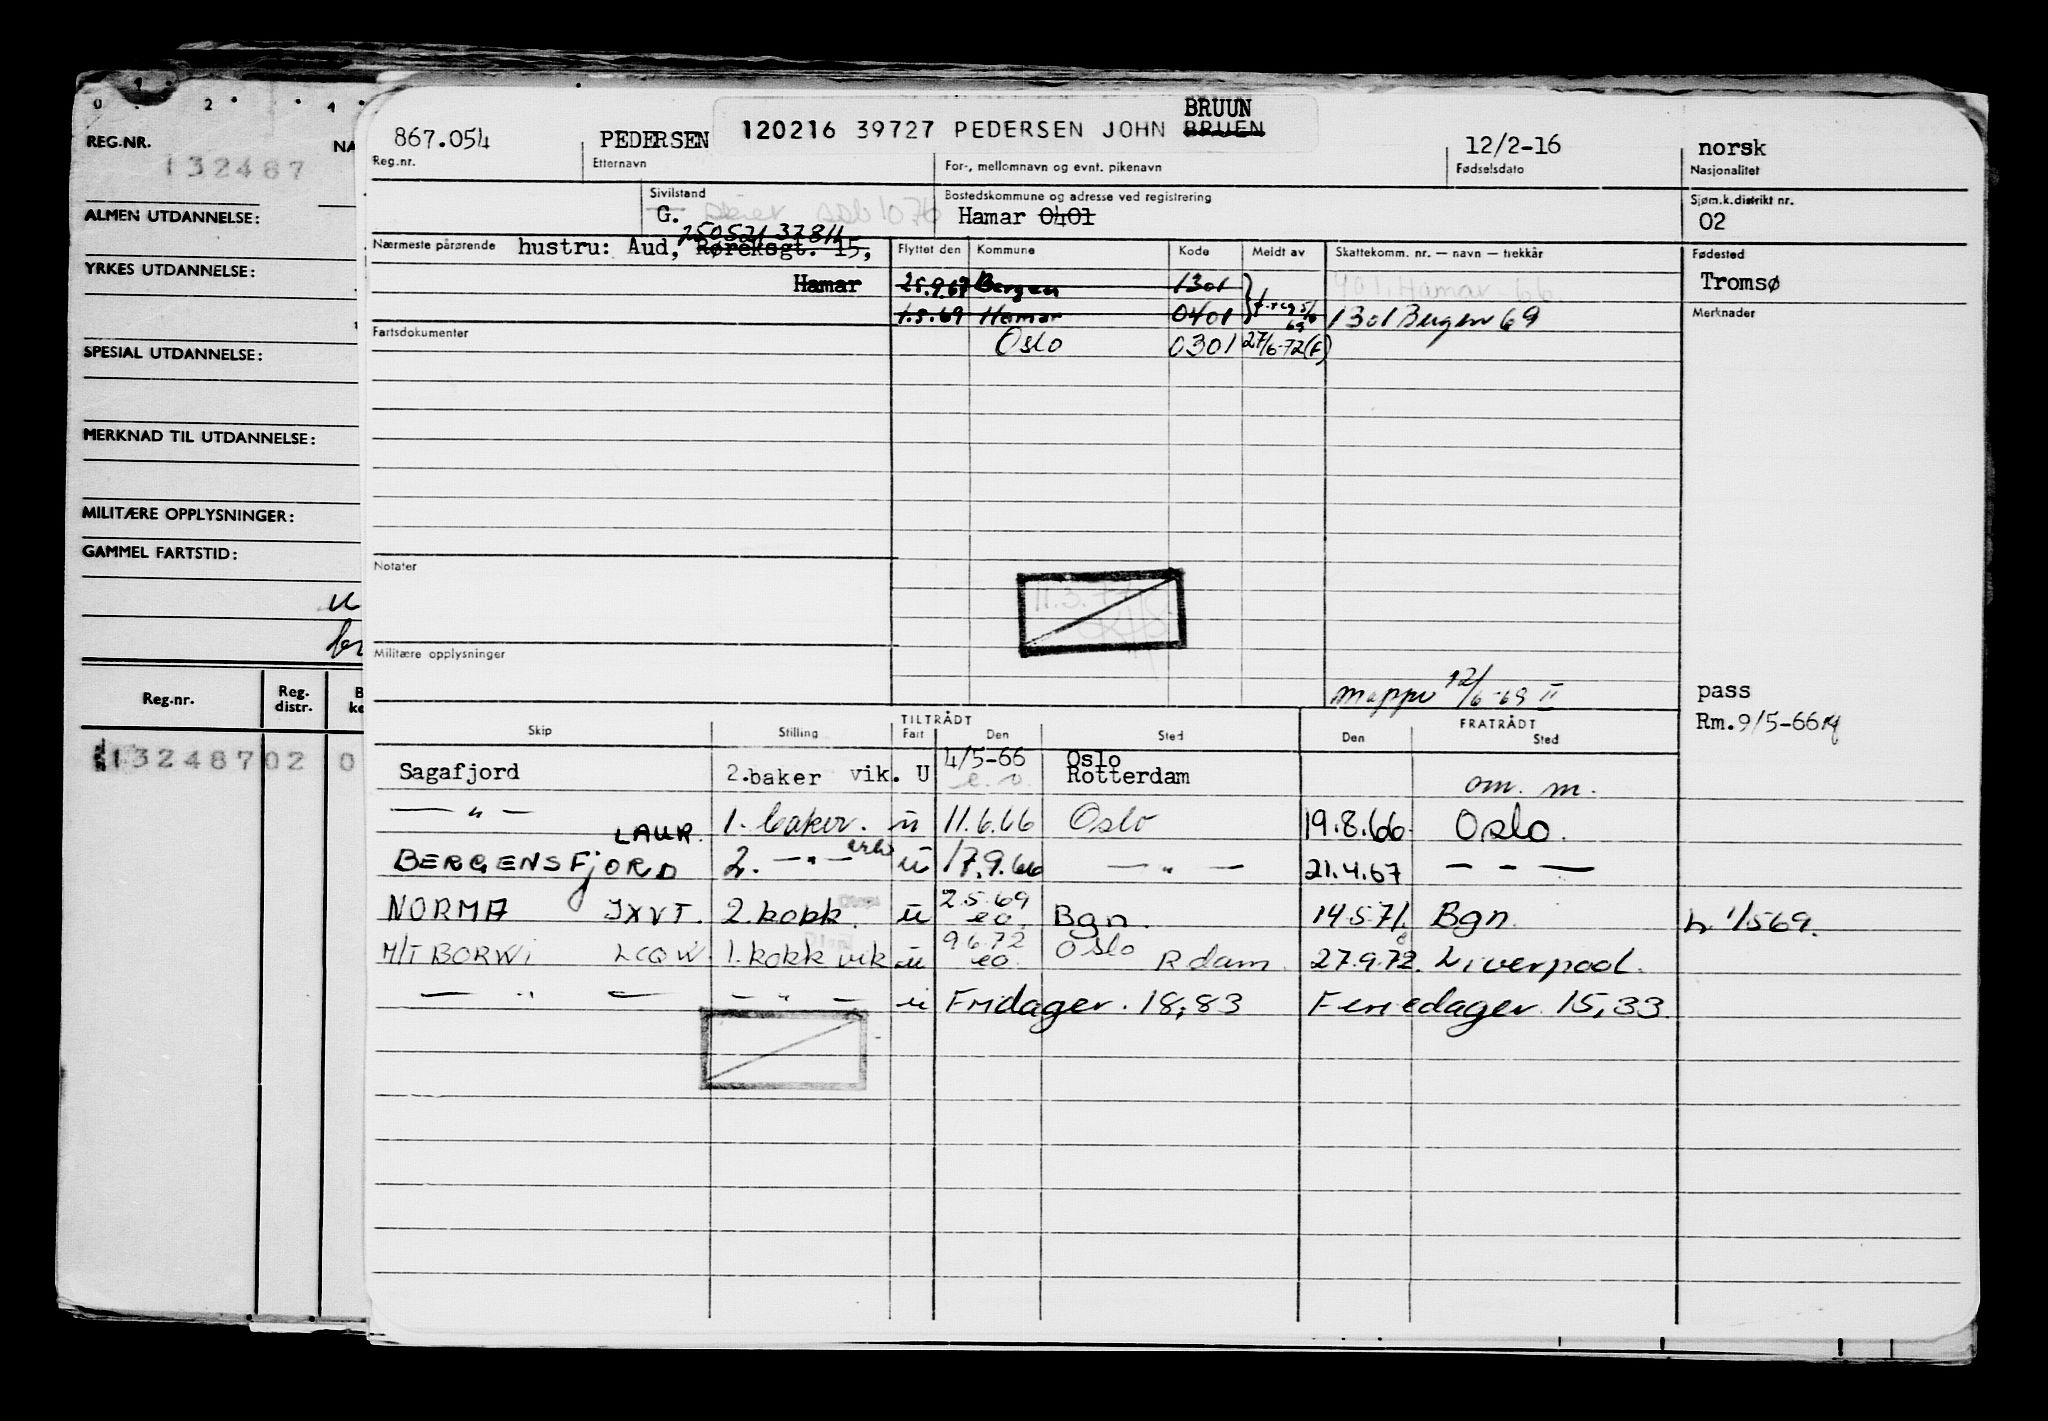 0 2 4
REG.NR. NA
132487
ALMEN UTDANNELSE:
YRKES UTDANNELSE:
SPESIAL UTDANNELSE:
MERKNAD TIL UTDANNELSE:
MILITÆRE OPPLYSNINGER:
GAMMEL FARTSTID:
Reg.nr. Reg. distr.
132487 02 0
BRUUN
867.054 PEDERSEN 120216 39727 PEDERSEN JOHN BRUEN 12/2-16 norsk
Reg.nr. Etternavn For-, mellomnavn og evnt. pikenavn Fødselsdato Nasjonalitet
Sivilstand Bostedskommune og adresse ved registrering Sjøm.k.distrikt nr.
G. Hamar 0401 02
250521 37811
Nærmeste pårørende hustru: Aud, Røreksgt. 15, Flyttet den Kommune Kode Meldt av Skattekomm. nr. — navn — trekkår Fødested
Hamar 25.9.67 Bergen 1301 401 Hamar 66 Tromsø
1.5.69 Hamar 0401 1301 Bergen 69 Merknader
Fartsdokumenter Oslo 0301 27/6-72 (F)
Notater
11.3.77
Militære opplysninger
Mappe 12/6-69 II pass
Rm. 9/5-66
TILTRÅDT FRATRÅDT
Skip Stilling Fart Den Sted Den Sted
Sagafjord 2.baker vik. U 4/5-66 e.o. Oslo Rotterdam om. m.
— " — 1. baker. u 11.6.66 Oslo 19.8.66 Oslo.
BERGENSFJORD LAUR. 2. — " — u 17.9.66 — " — 21.4.67 — " —
NORMA JXVT. 2. kokk. u 2.5.69 eo Bgn. 14.5.71. Bgn. h 1/5 69.
M/T BORWI LCQW. 1. kokk vik u 9.6.72 eo. Oslo Rdam. 27.9.72. Liverpool.
— " — — " — u Fridager. 18,83 Feriedager. 15,33